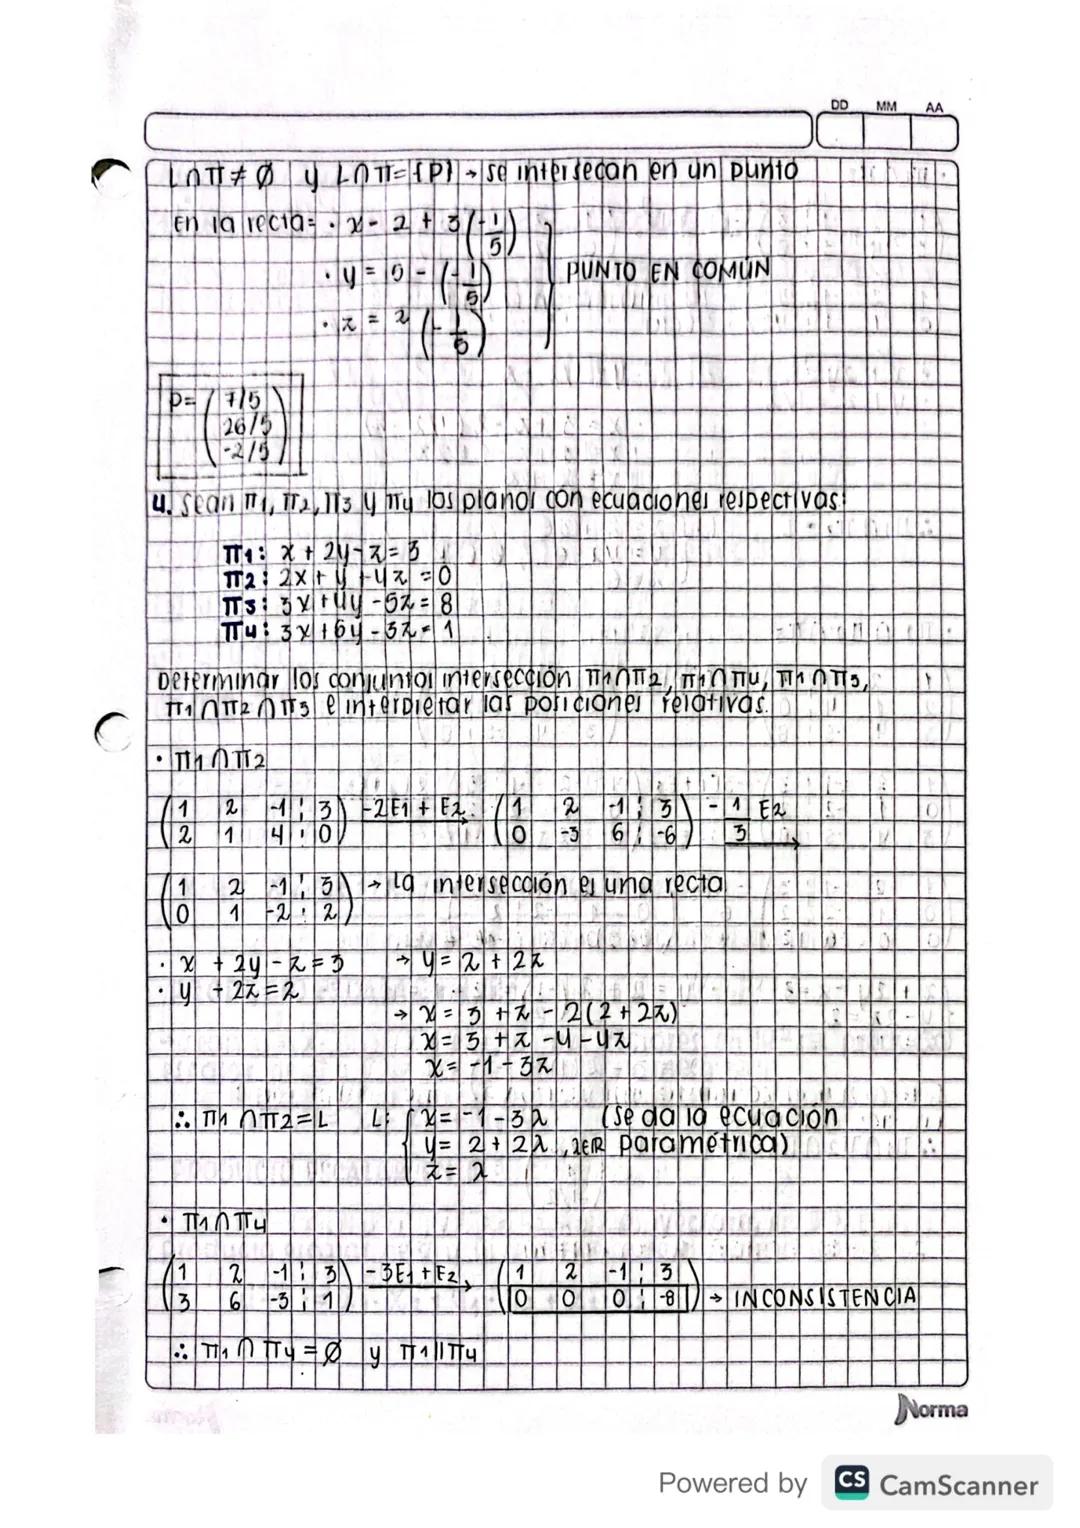 DD MM AA
L∩π ≠ Ø y L∩π = {P} → se intersecan en un punto
En la recta: · x = 2 + 3(-1/5)
· y = 5 - (-1/5)
PUNTO EN COMÚN
· z = 2(-1/5)
P = (7/5
26/5
-2/5)
4. Sean π1, π2, π3 y π4 los planos con ecuaciones respectivas:
π1: x + 2y - z = 3
π2: 2x + y + 4z = 0
π3: 3x + 4y - 5z = 8
π4: 3x + 6y - 3z = 1
Determinar los conjuntos intersección π1∩π2, π1∩π4, π1∩π3,
π1∩π2∩π3 e interpretar las posiciones relativas.
· π1∩π2
(1 2 -1 ¦ 3) -2E1 + E2 (1 2 -1 ¦ 3) -1/3 E2
(2 1 4 ¦ 0) → (0 -3 6 ¦ -6) →
(1 2 -1 ¦ 3) → la intersección es una recta
(0 1 -2 ¦ 2)
· x + 2y - z = 3 → y = 2 + 2z
· y - 2z = 2
→ x = 3 + z - 2(2 + 2z)
x = 3 + z - 4 - 4z
x = -1 - 3z
∴ π1∩π2 = L L: { x = -1 - 3λ (se da la ecuación
y = 2 + 2λ , λ∈ℝ paramétrica)
z = λ
· π1∩π4
(1 2 -1 ¦ 3) -3E1 + E2 (1 2 -1 ¦ 3)
(3 6 -3 ¦ 1) → (0 0 0 ¦ -8) → INCONSISTENCIA
∴ π1∩π4 = Ø y π1 || π4
Norma
Powered by CS CamScanner